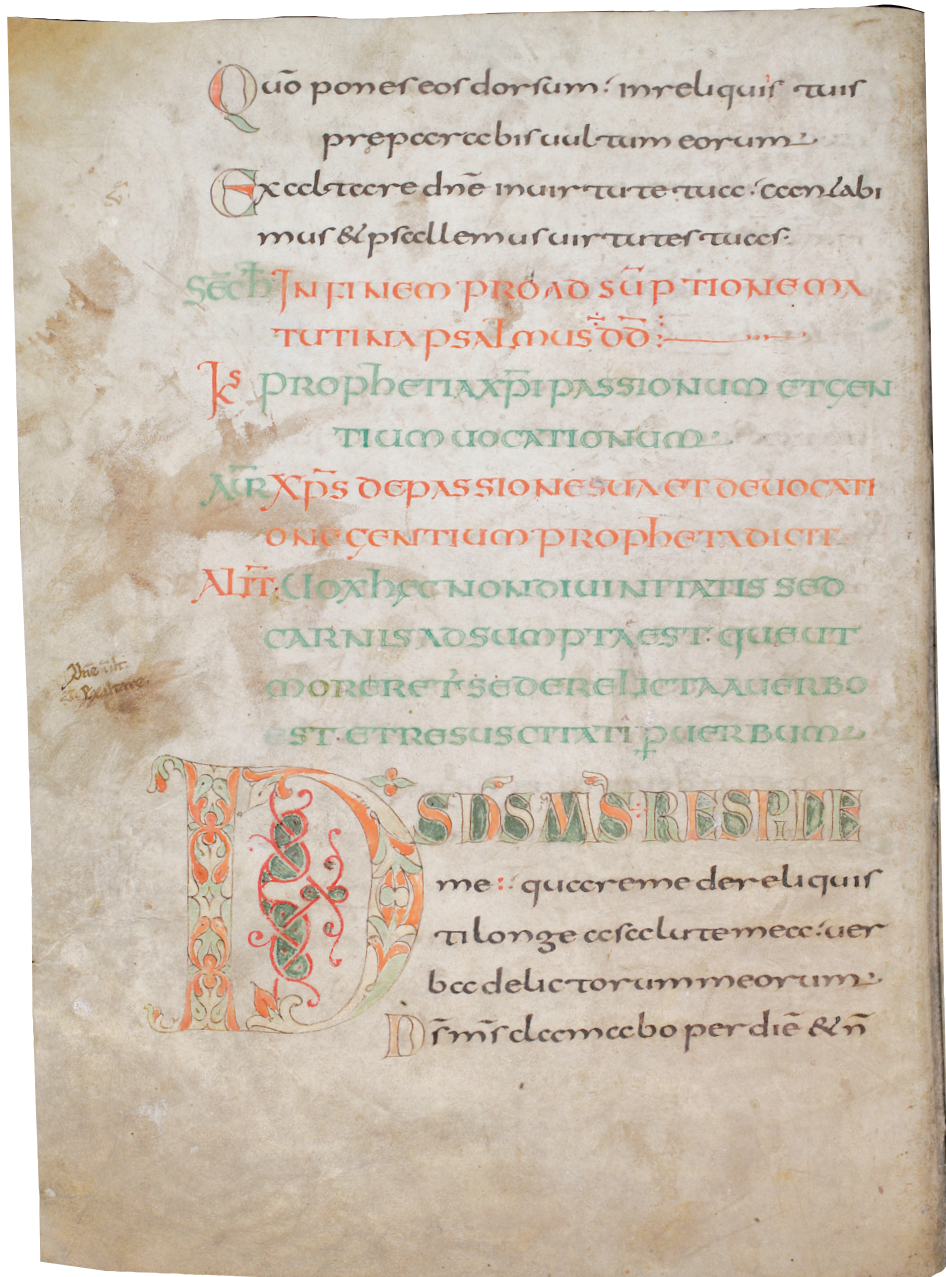 Quō pones eos dorsum: in reliquis tuis
pręparabis uultum eorum
Exaltare dnē in uirtute tua: cantabi
mus & psallemus uirtutes tuas:
IN FINEM PRO ADSŪPTIONE MA
TUTINA PSALMUS DD̄:
PROPHETIA XP̄I PASSIONUM ET GEN
TIUM UOCATIONUM
XP̄S DE PASSIONE SUA ET DE UOCATI
ONE GENTIUM PROPHETA DICIT
ALIT̄ UOX HĘC NON DIUINITATIS SED
CARNIS ADSUMPTA EST· QUE UT
MORERET̄ SED DERELICTA A UERBO
EST· ET RESUSCITATI P̱ UERBUM
D̄S D̄S M̄S RESPICE
me: quare me dereliquis
ti longe a salute mea: uer
ba delictorum meorum
D̄s m̄s clamabo per diē & n̄